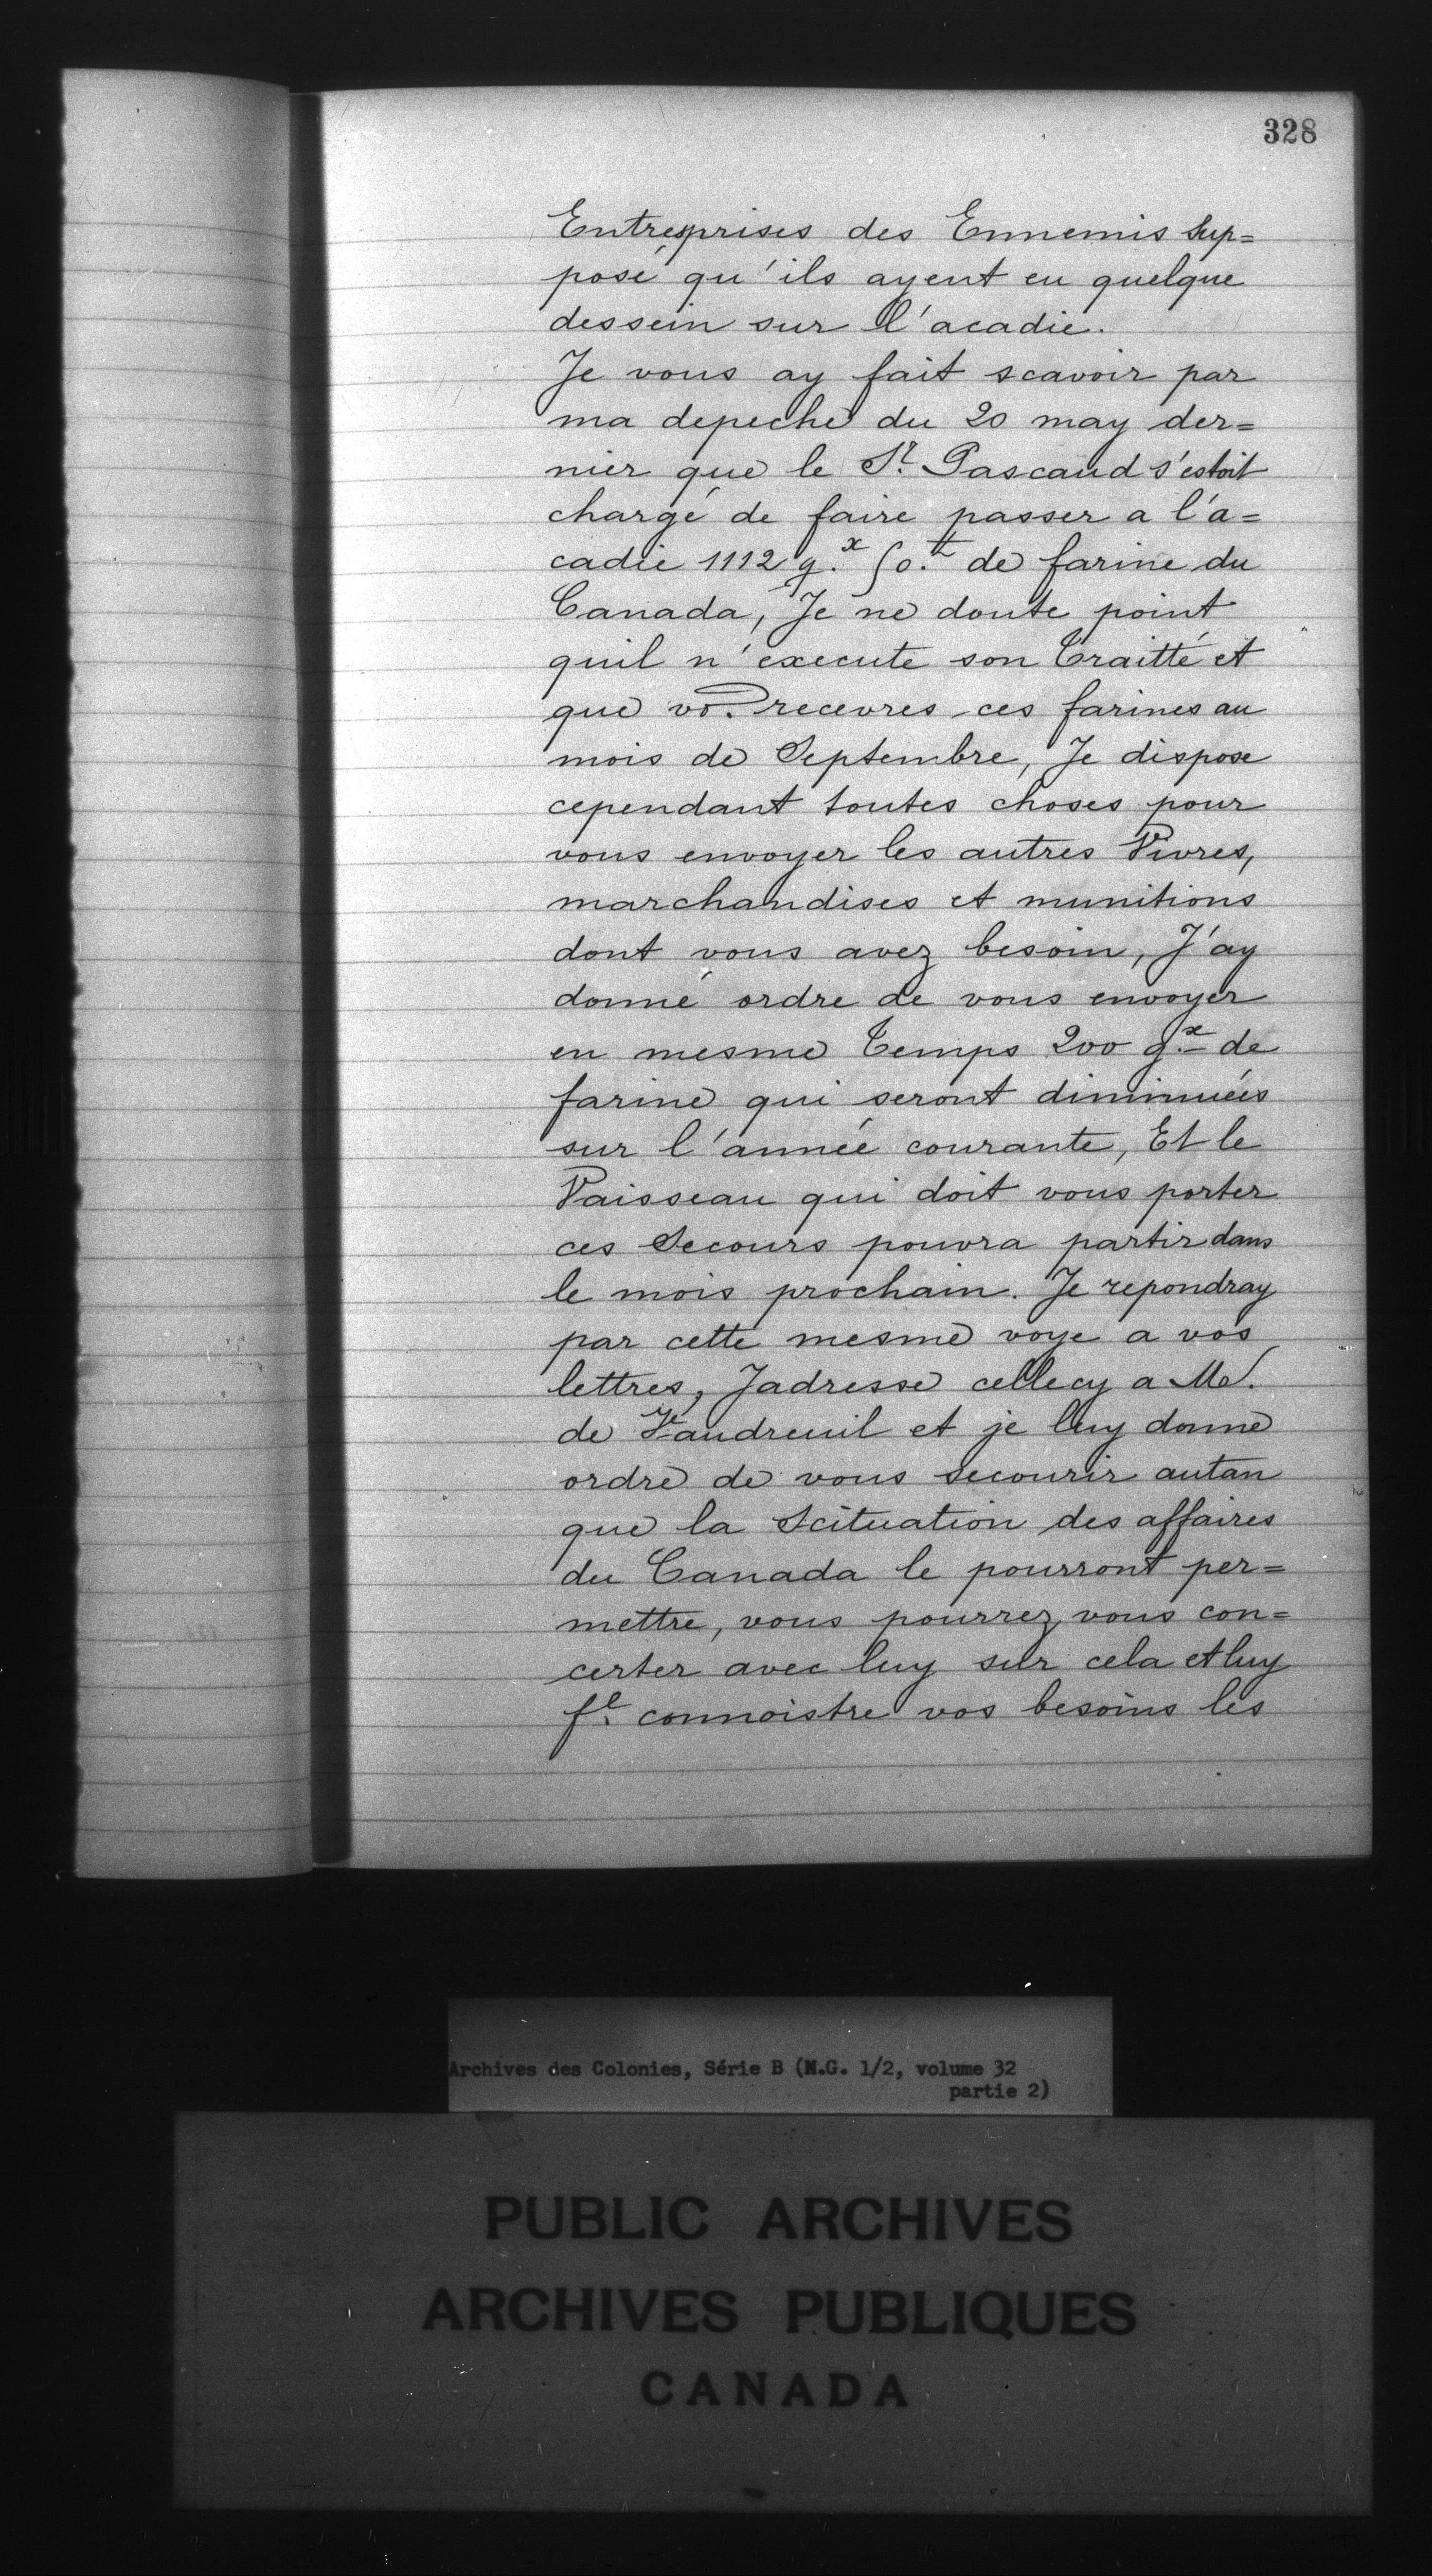 328
Entreprises des Ennemis sup=
posé qu'ils ayent eu quelque
dessein sur l'acadie.
Je vous ay fait scavoir par
ma depeche du 20 may der=
nier que le Sr. Pascaud s'estoit
chargé de faire passer a l'a=
cadie 1112 q.x 50.tt de farine du
Canada, Je ne doute point
quil n'execute son Traitté et
que vo. recevres ces farines au
mois de Septembre, Je dispose
cependant toutes choses pour
vous envoyer les autres Vivres,
marchandises et munitions
dont vous avez besoin, J'ay
donné ordre de vous envoyer
en mesme Temps 200 q.x de
farine qui seront diminuées
sur l'année courante, Et le
Vaisseau qui doit vous porter
ces Secours pouvra partir dans
le mois prochain. Je repondray
par cette mesme voye a vos
lettres, Jadresse cellecy a Md.
de Vaudreuil et je luy donne
ordre de vous secourir autan
que la Scituation des affaires
du Canada le pourront per=
mettre, vous pourrez vous con=
certer avec luy sur cela et luy
f.e connoistre vos besoins les
Archives des Colonies, Série B (M.G. 1/2, volume 32
partie 2)
PUBLIC ARCHIVES
ARCHIVES PUBLIQUES
CANADA